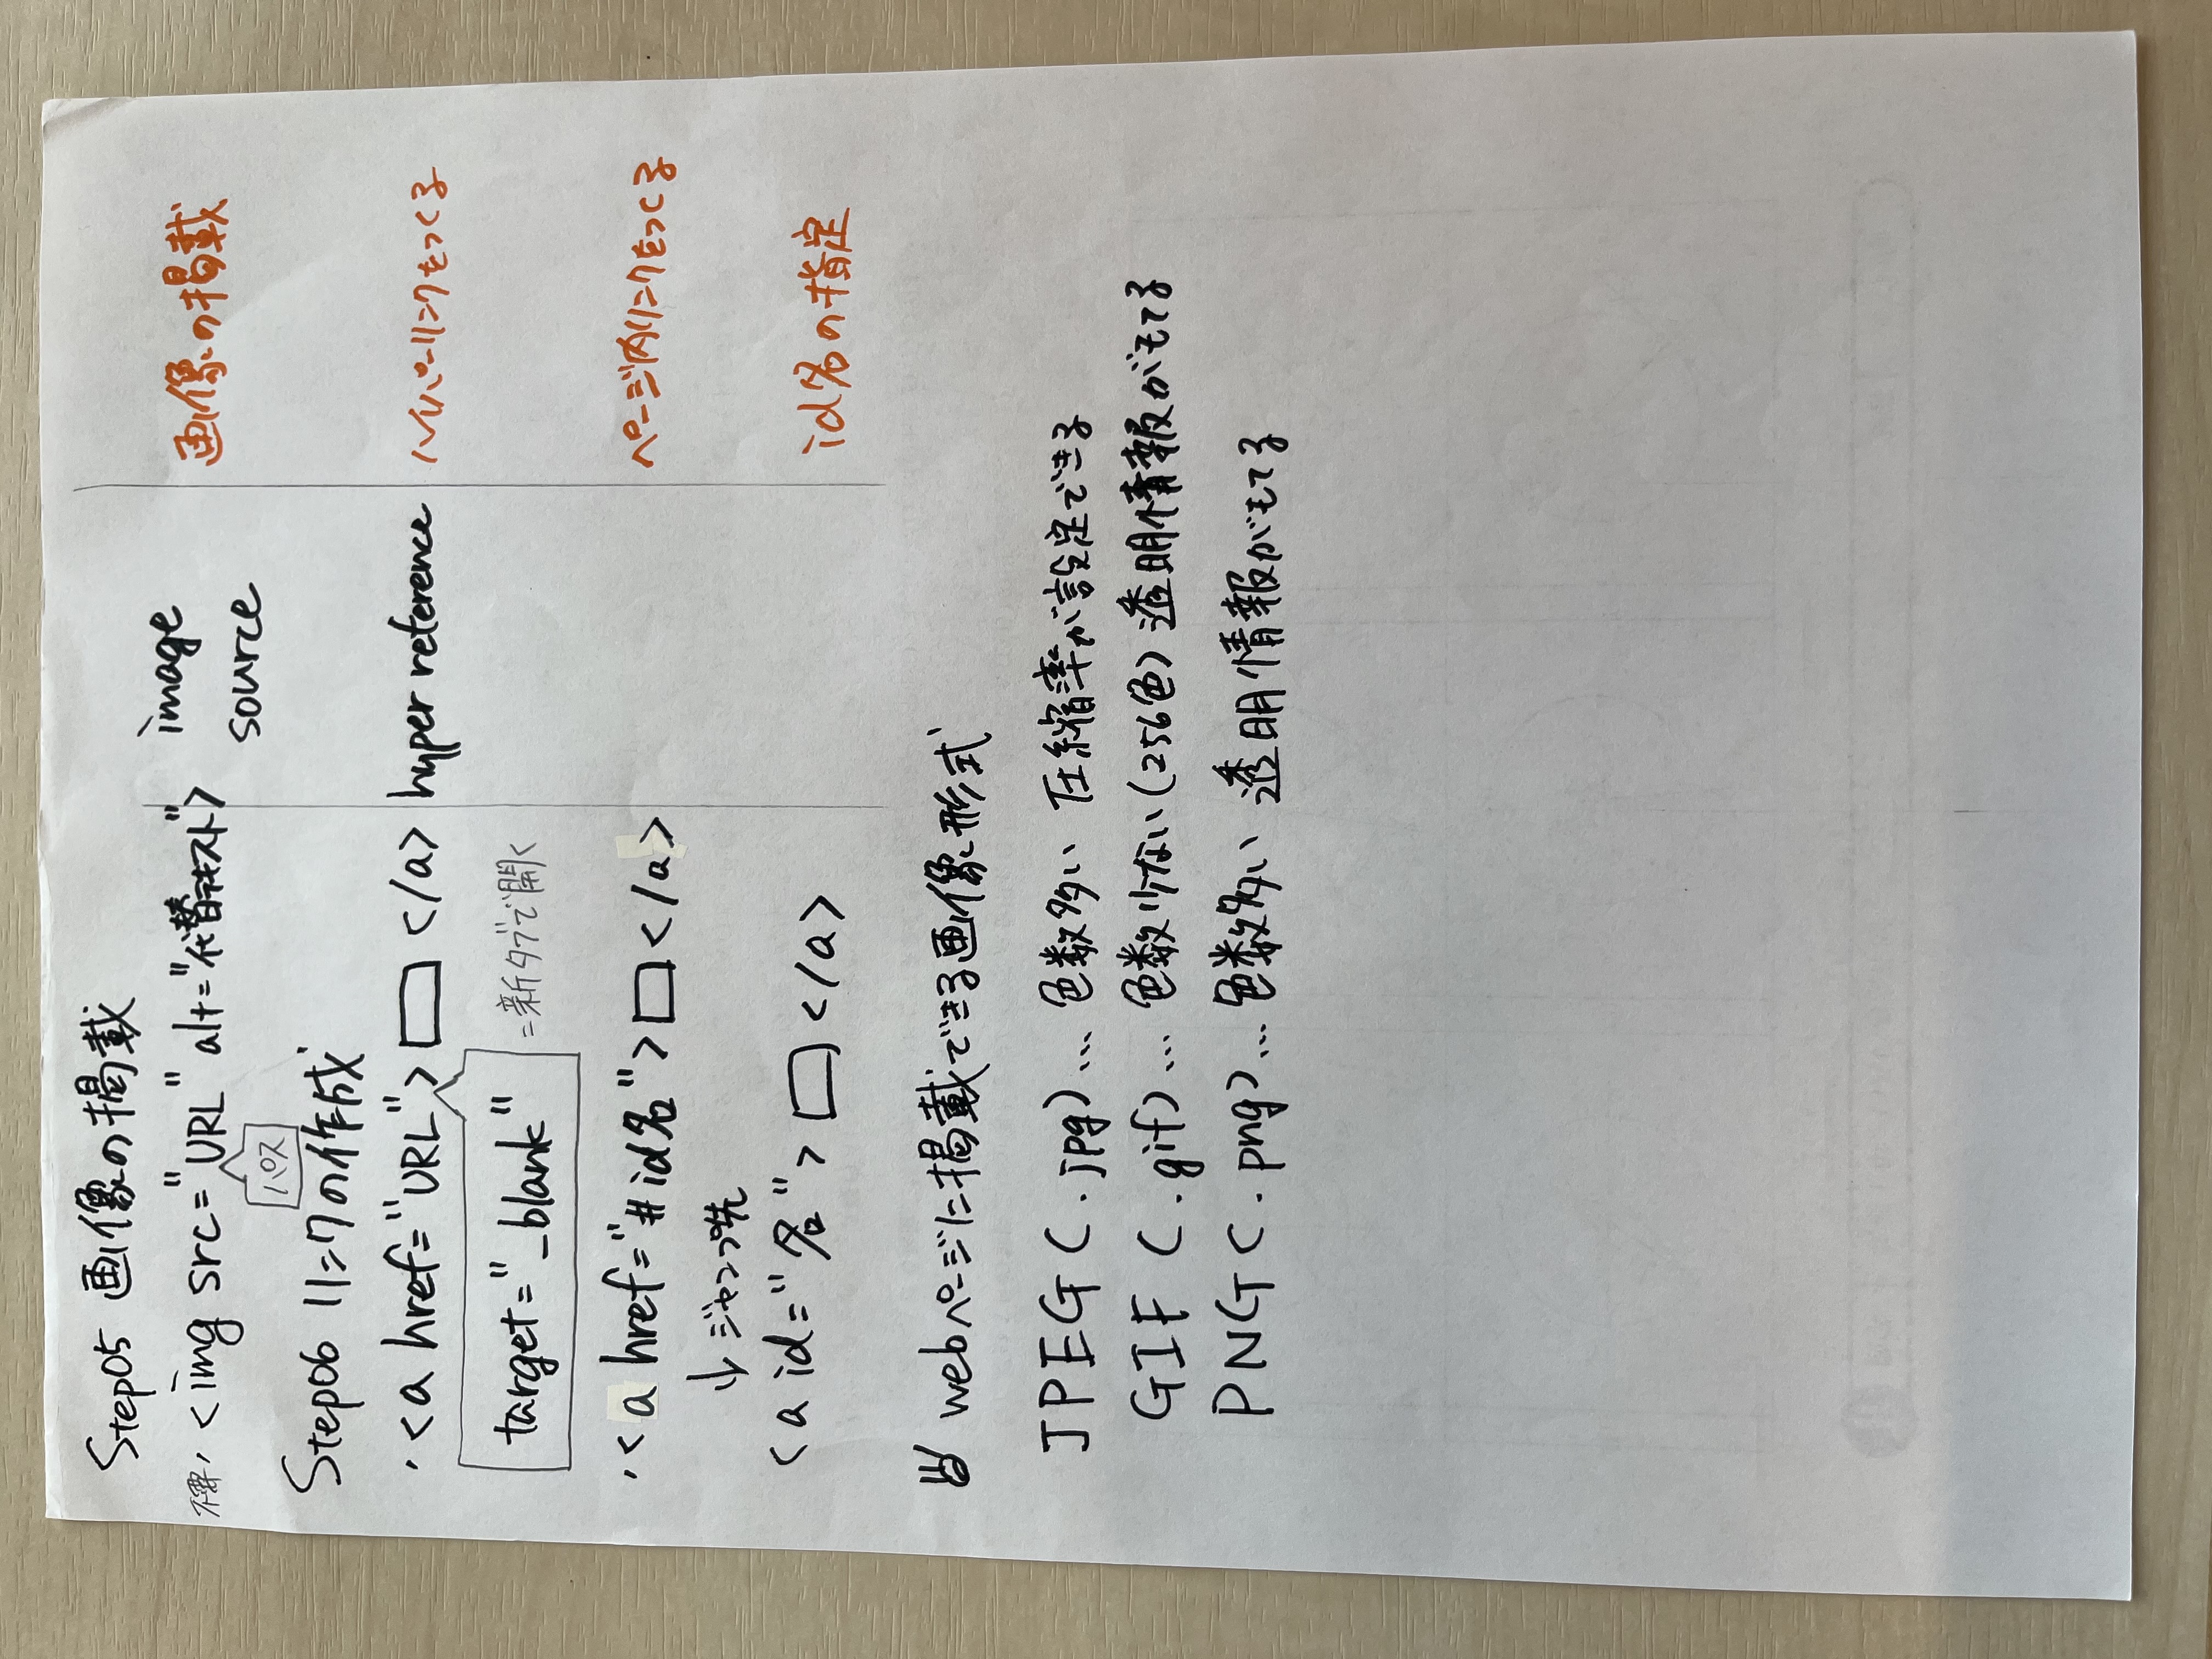 Step05 画像の掲載
不要・<img src="URL" alt="代替テキスト"> image 画像の掲載
source
パス
Step06 リンクの作成
・<a href="URL">□</a> hyper reference ハイパーリンクをつくる
target="_blank" =新タブで開く
・<a href="#id名">□</a> ページ内リンクをつくる
↓ジャンプ先
<a id="名">□</a> id名の指定
webページに掲載できる画像形式
JPEG(.jpg)... 色数多い 圧縮率が設定できる
GIF(.gif)... 色数少ない(256色) 透明情報がもてる
PNG(.png)... 色数多い 透明情報がもてる